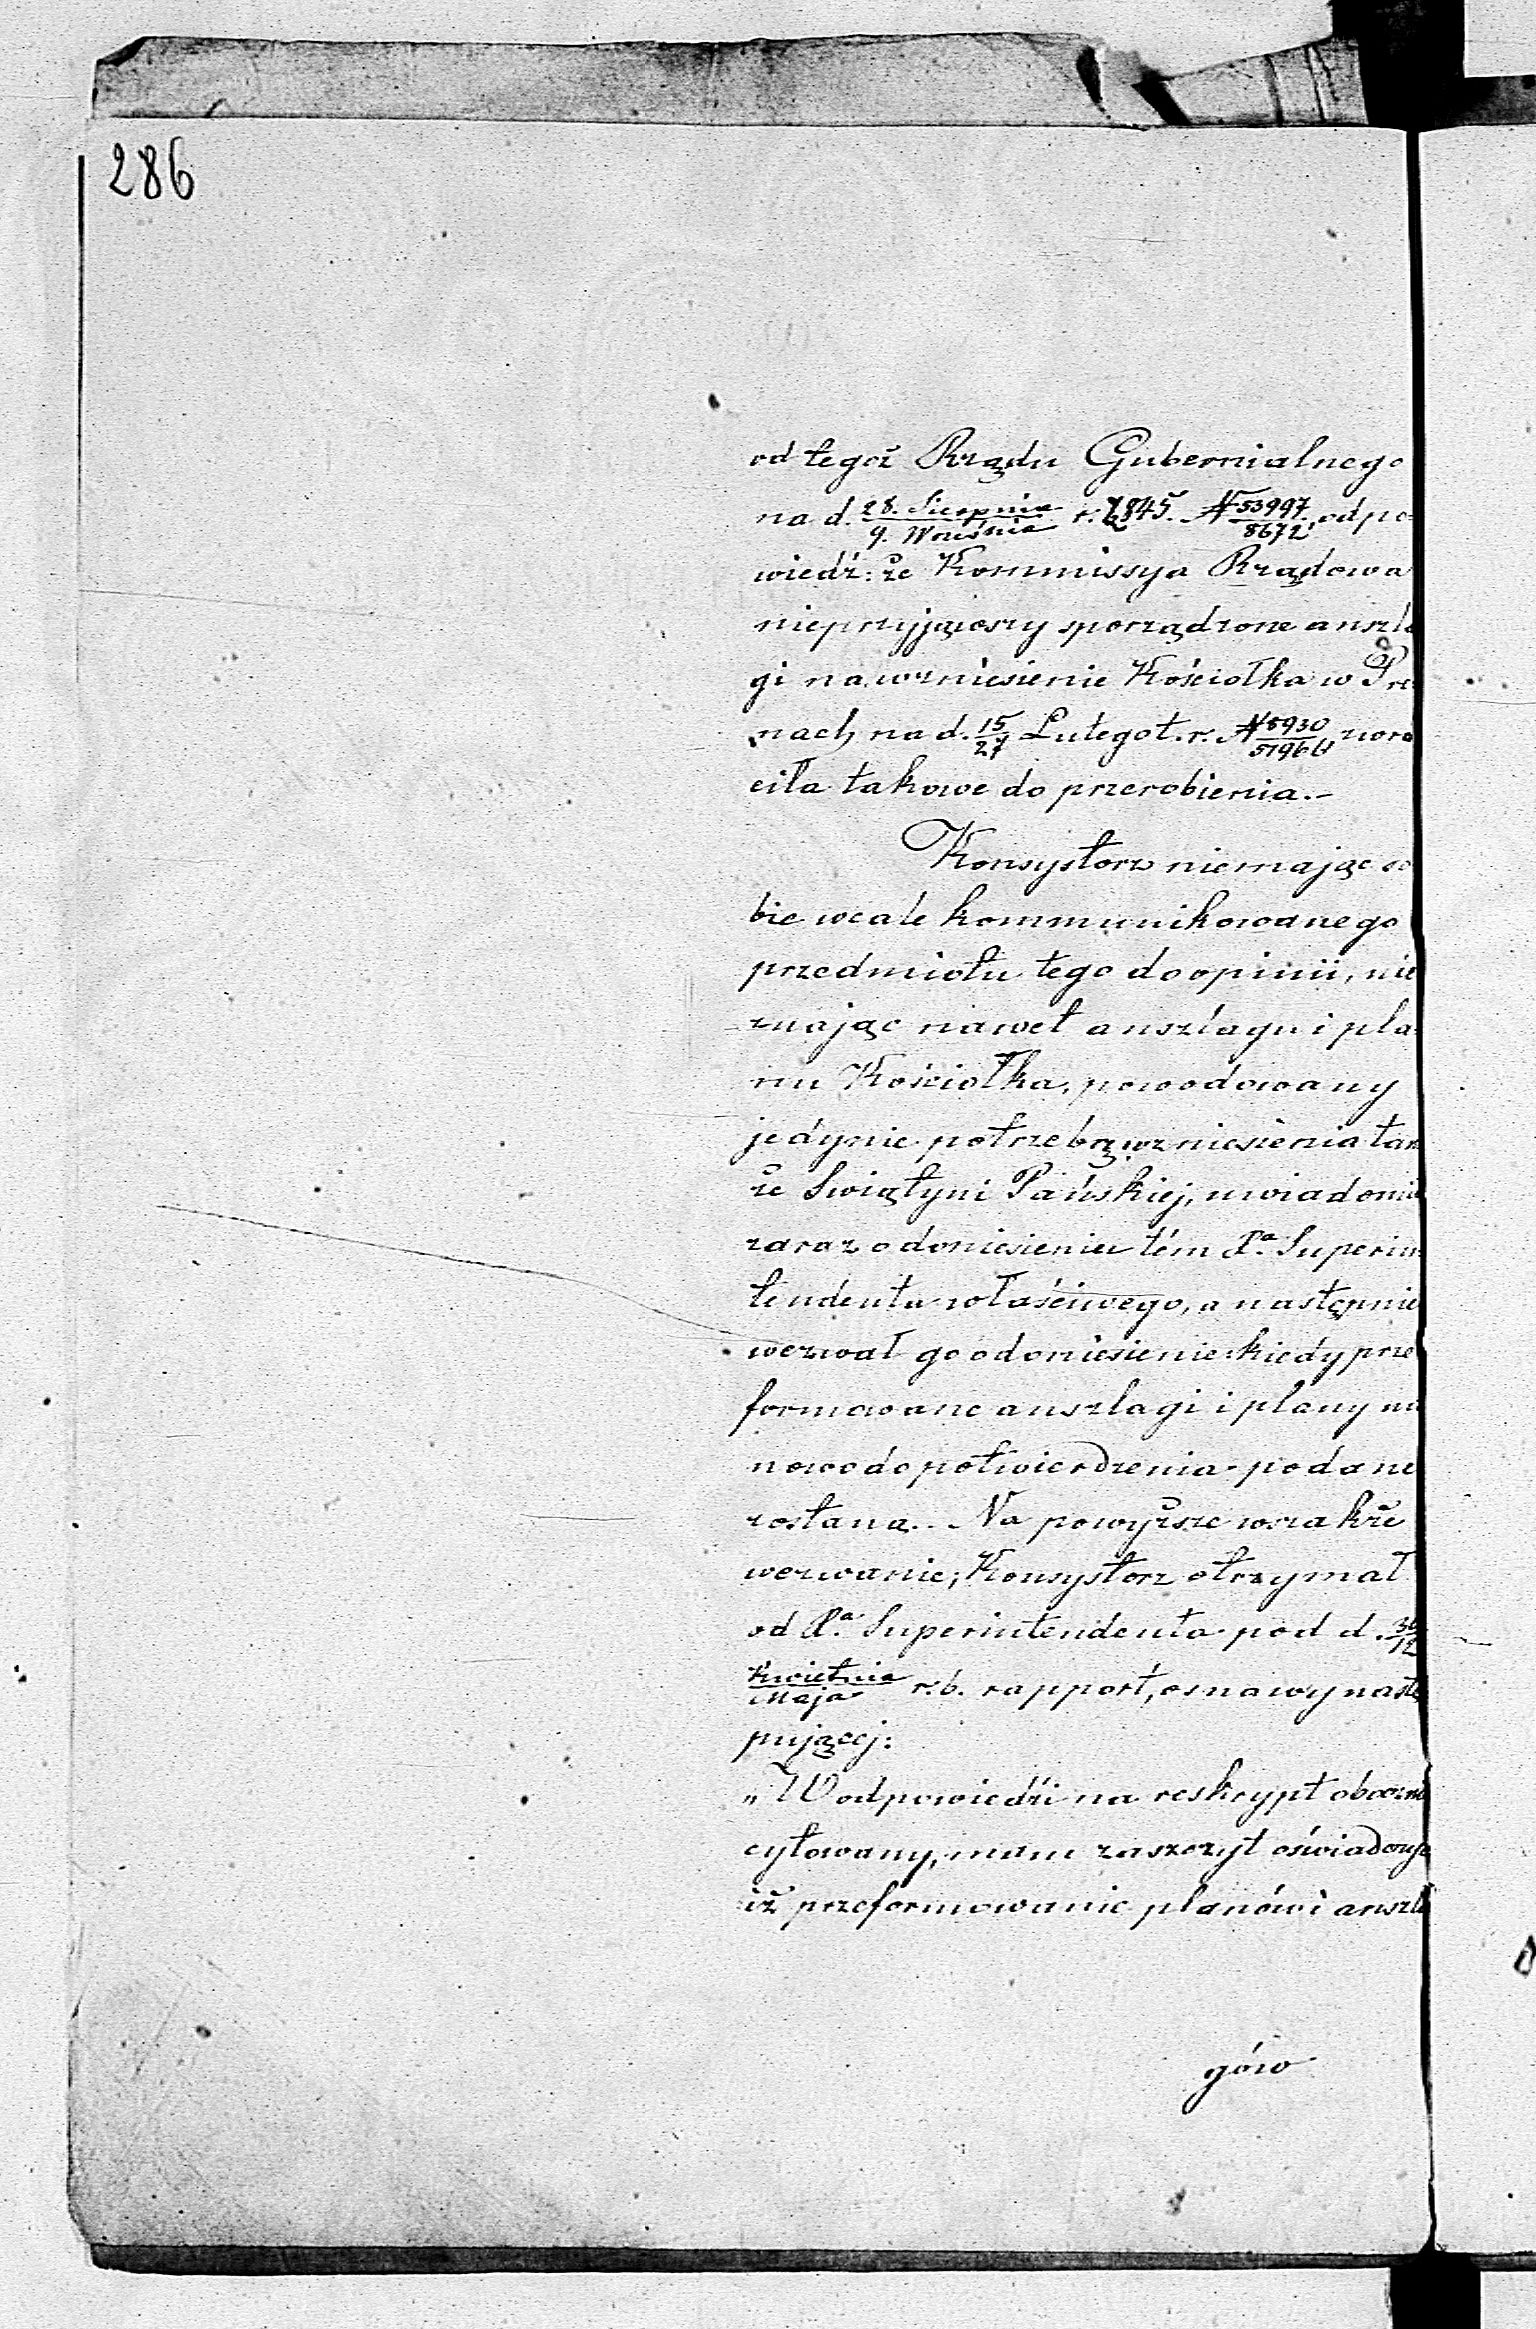 286
od tegoż Rządu Gubernialnego
na d. 28. Sierpnia / 9. Wrześnis r. 1845. N 53997/8672 odpo-
wiedź: że Kommissya Rządowa
nieprzyjąwszy sporządzone anszla
gi na wzniesienie Kościołka w Pre
nach, na d. 15/27 Lutego t. r. N 8930/51966 zwró
ciła takowe do przerobienia.-
Konsystorz niemając so
bie wcale kommunikowanego
przedmiotu tego do opinii, nie
znając nawet anszlagu i pla-
nu Kościołka, powodowany
jedynie potrzebą wzniesienia tam
że Swiątyni Pańskiej, uwiadomił
zaraz o doniesieniu tém Pa. Superin-
tendenta właściwego, a następnie
wezwał go o doniesienie: kiedy prze
formowane anszlagi i plany na
nowo do potwierdzenia podane
zostaną. Na powyższe wszakże
wezwanie; Konsystorz otrzymał
od Pa. Superintendenta pod d. 30/12
Kwietnia/Maja r. b. rapport, osnowy nastę
pującej:
„W odpowiedzi na reskrypt obocznie
cytowany, mam zaszczyt oświadczyć
iż przeformowanie planów i anszla
gów